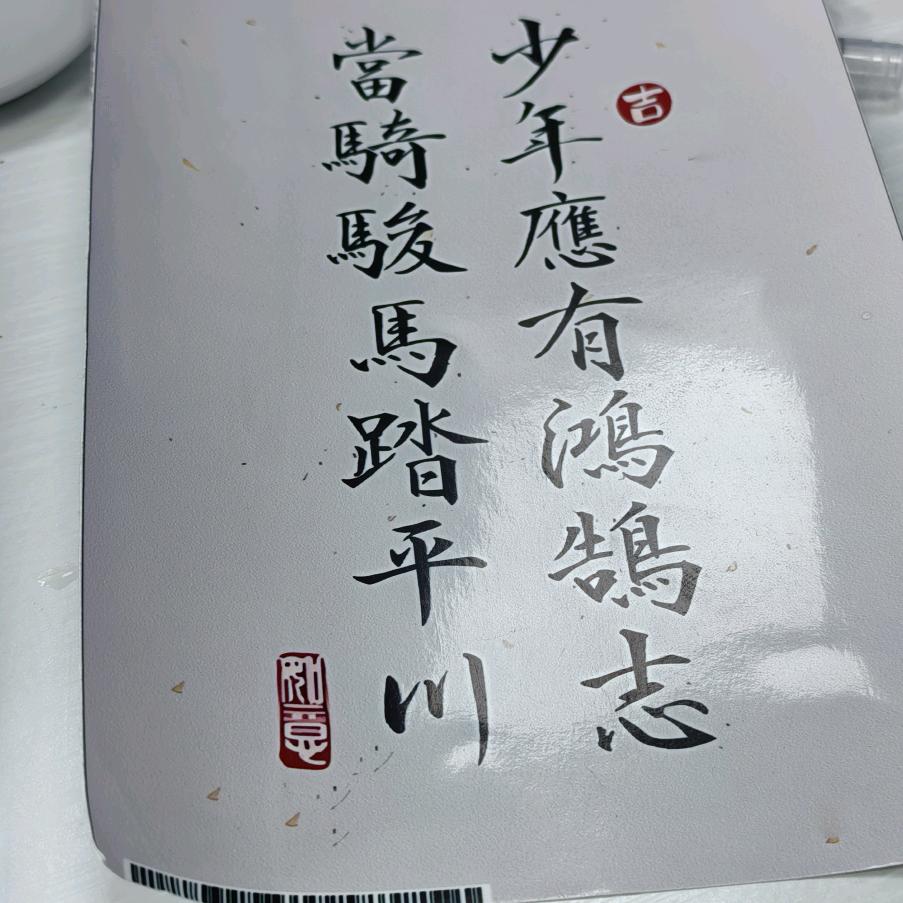 吉
少年應有鴻鵠志
當騎駿馬踏平川
如意